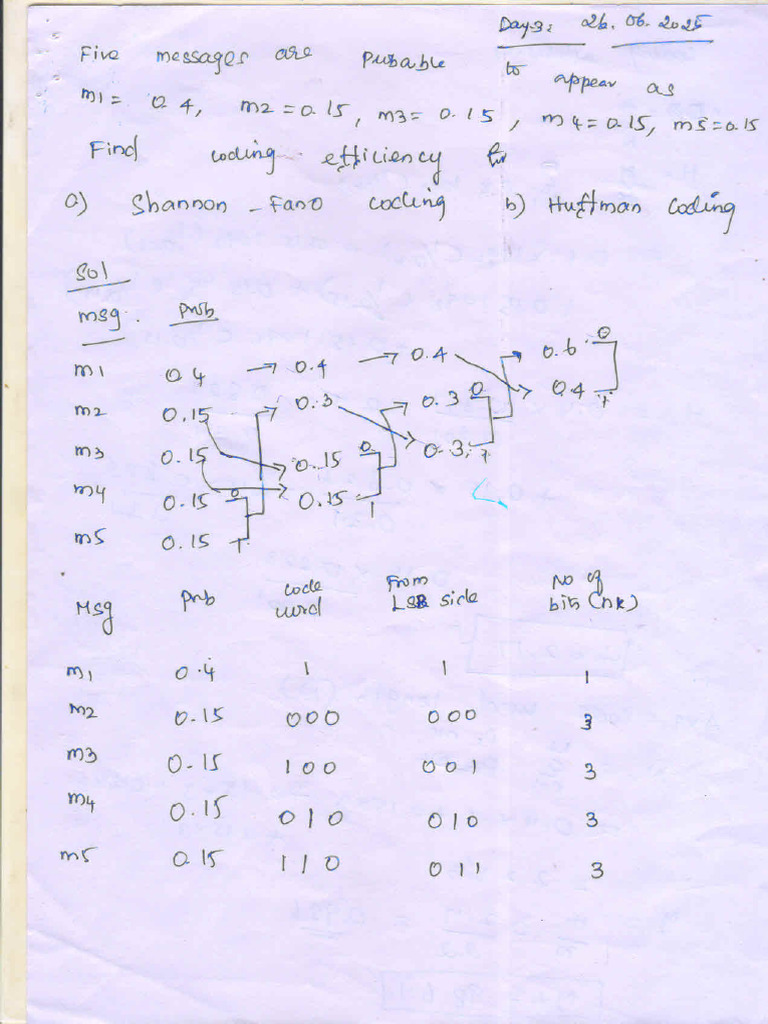 Day-3: 26.06.2025
Five messages are pubable to appear as
m1= 0.4, m2=0.15, m3=0.15, m4=0.15, m5=0.15
Find coding efficiency for
a) Shannon-Fano coding b) Huffman coding
Sol
msg. prob
m1 0.4 → 0.4 → 0.4 0.6 0
m2 0.15 0.3 0.3 0 0.4 1
m3 0.15 0.15 0 0.3 1
m4 0.15 0 0.15 1
m5 0.15 1
Msg prob code word From LSB side No of bits (nk)
m1 0.4 1 1 1
m2 0.15 000 000 3
m3 0.15 100 001 3
m4 0.15 010 010 3
m5 0.15 110 011 3